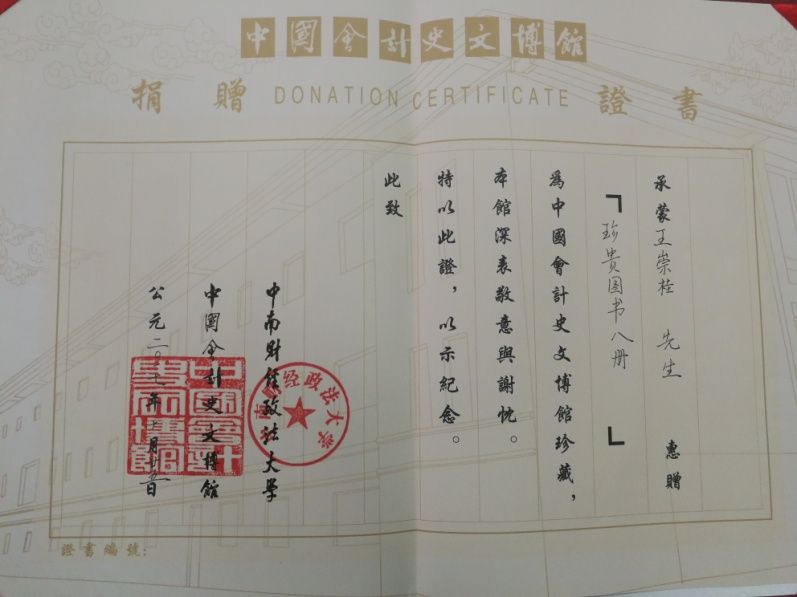 中國會計史文博館
捐贈 DONATION CERTIFICATE 證書
承蒙王崇桂 先生 惠贈
「珍贵图书八册」
為中國會計史文博館珍藏，
本館深表敬意與謝忱。
特以此證，以示紀念。
此致
中南財經政法大學
中國會計史文博館
公元二〇一七年
證書編號：